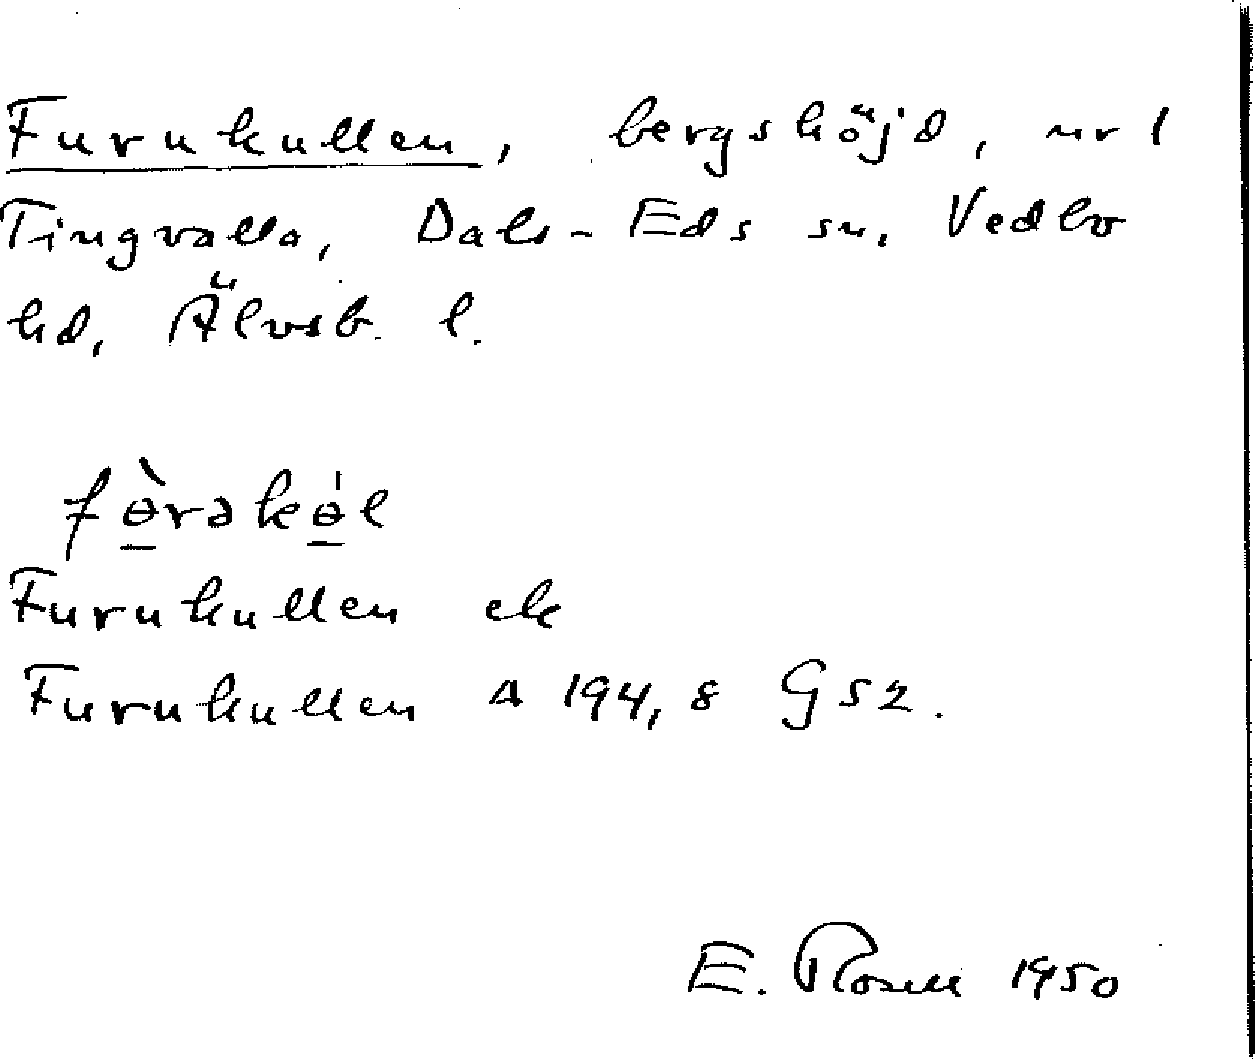 Furukullen, bergshöjd, nr 1
Tingvalla, Dals-Eds sn, Vedbo
hd, Älvsb. l.
fɵ̀rəkɵ́l
Furukullen ek
Furukullen Δ 194,8 Gsz.
E. Rosell 1950